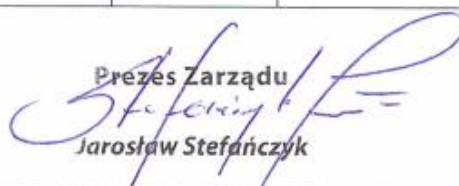 Prezes Zarządu
Jarosław Stefańczyk